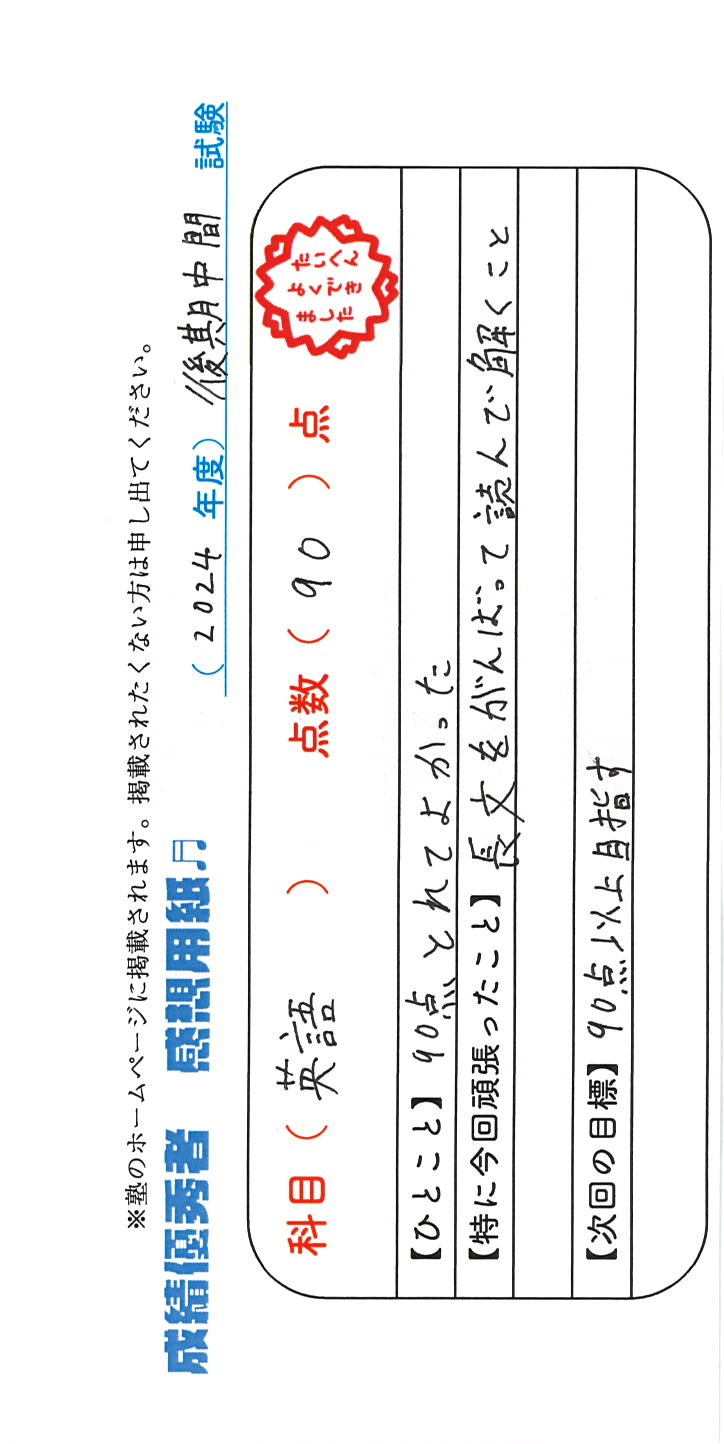 ※塾のホームページに掲載されます。掲載されたくない方は申し出てください。
成績優秀者 感想用紙♬ （2024 年度）後期中間 試験
科目（英語）点数（90）点
たいへん
よくでき
ました
【ひとこと】90点とれてよかった
【特に今回頑張ったこと】長文をがんばって読んで解くこと
【次回の目標】90点以上目指す